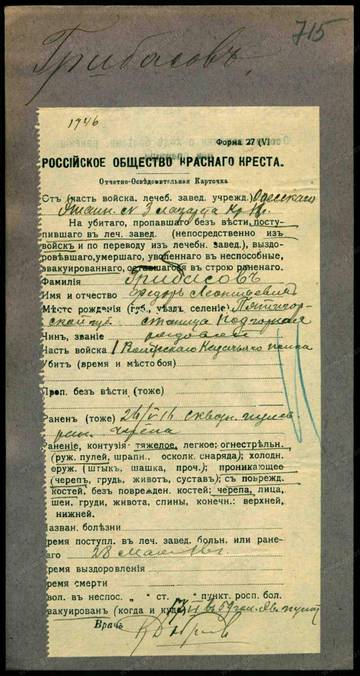 715
Грибасовъ
1746
Форма 27 (VI
РОССІЙСКОЕ ОБЩЕСТВО КРАСНАГО КРЕСТА.
Отчетно-Освѣдомительная Карточка
Отъ (часть войска, лечеб. завед. учрежд.) Одесскаго
№ 3 лазарета Кр. Кр.
На убитаго, пропавшаго безъ вѣсти, посту-
пившаго въ леч. завед. (непосредственно изъ
войскъ и по переводу изъ лечебн. завед.), выздо-
ровѣвшаго, умершаго, уволеннаго въ неспособные,
эвакуированнаго, оставшагося въ строю раненаго.
Фамилія Грибасовъ
Имя и отчество Ѳедоръ Леонтьевичъ
Мѣсто рожденія (губ., уѣздъ, селеніе)
ской губ. станица Подгорная
Чинъ, званіе рядовой
Часть войска 1 полка
Убитъ (время и мѣсто боя)
Проп. безъ вѣсти (тоже)
Раненъ (тоже) 26/V 16 сквозн. пулев.
ран. черепа
Раненіе, контузія тяжелое, легкое; огнестрѣльн.
(руж. пулей, шрапн., осколк. снаряда); холодн.
оруж. (штыкъ, шашка, проч.); проникающее
(черепъ, грудь, животъ, суставъ); съ поврежд.
костей, безъ поврежден. костей; черепа, лица,
шеи, груди, живота, спины, конечн.: верхней,
нижней.
Назван. болѣзни
время поступл. въ леч. завед. больн. или ране-
наго 28 Мая 16 г.
время выздоровленія
время смерти
вол. въ неспос. " " ст. " пункт. росп. бол.
эвакуированъ (когда и куда) эв. пунктъ
Врачъ